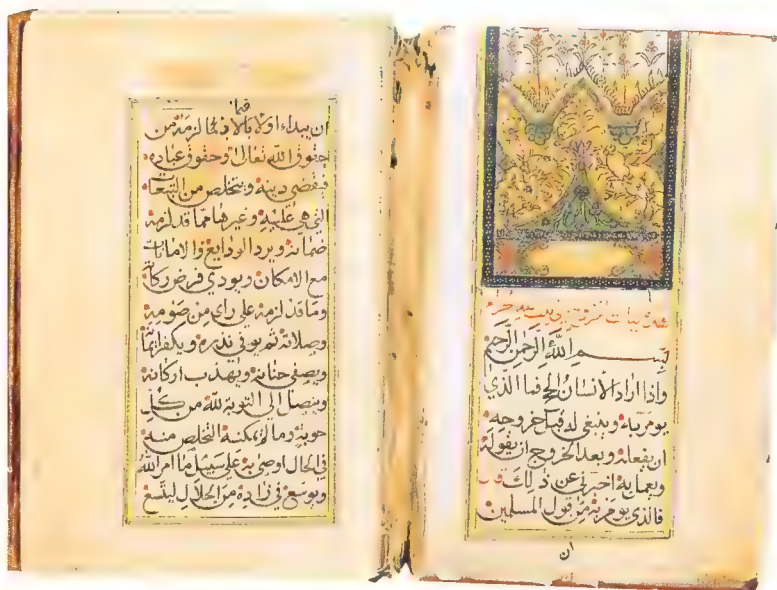 بسم الله الرحمن الرحيم
واذا اراد الانسان الحج فما الذي
يومر به وينبغي له قبل خروجه
ان يفعله وبعد الخروج ان يقوله
ويعمل به اخبرني عن ذلك
فالذي يومر به من قول المسلمين
ان
فيما
ان يبداء اولا بالاد لزمه من
حقوق الله تعالى وحقوق عباده
فيقضي دينه ويتخلص من التبعات
التي هي عليه وغيرها مما قد لزمه
ضمانه ويرد الودايع والامانات
مع الامكان ويودي فرض زكاته
وما قد لزمه على راي من صومه
وصلاته ثم يوفي نذره ويكفر
ويصفي جنانه ويهذب اركانه
ويتصل الى التوبة لله من كل
حوبة وما لم يمكنه التخلص منه
في الحال اوصى به على سبيل ما امر الله
ويوسع في زاده من الحلال ليتسع